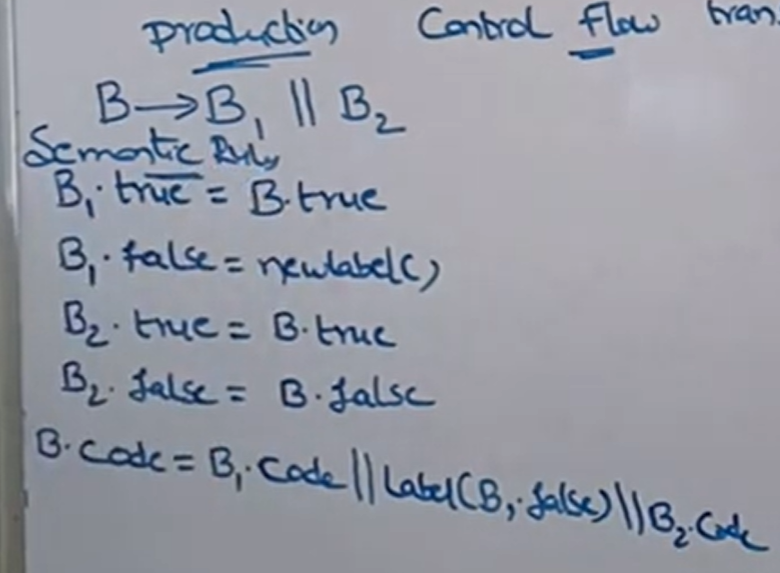 production Control Flow tran
B → B₁ || B₂
Semantic Rules
B₁.true = B.true
B₁.false = newlabel()
B₂.true = B.true
B₂.false = B.false
B.code = B₁.code || Label(B₁.false) || B₂.code